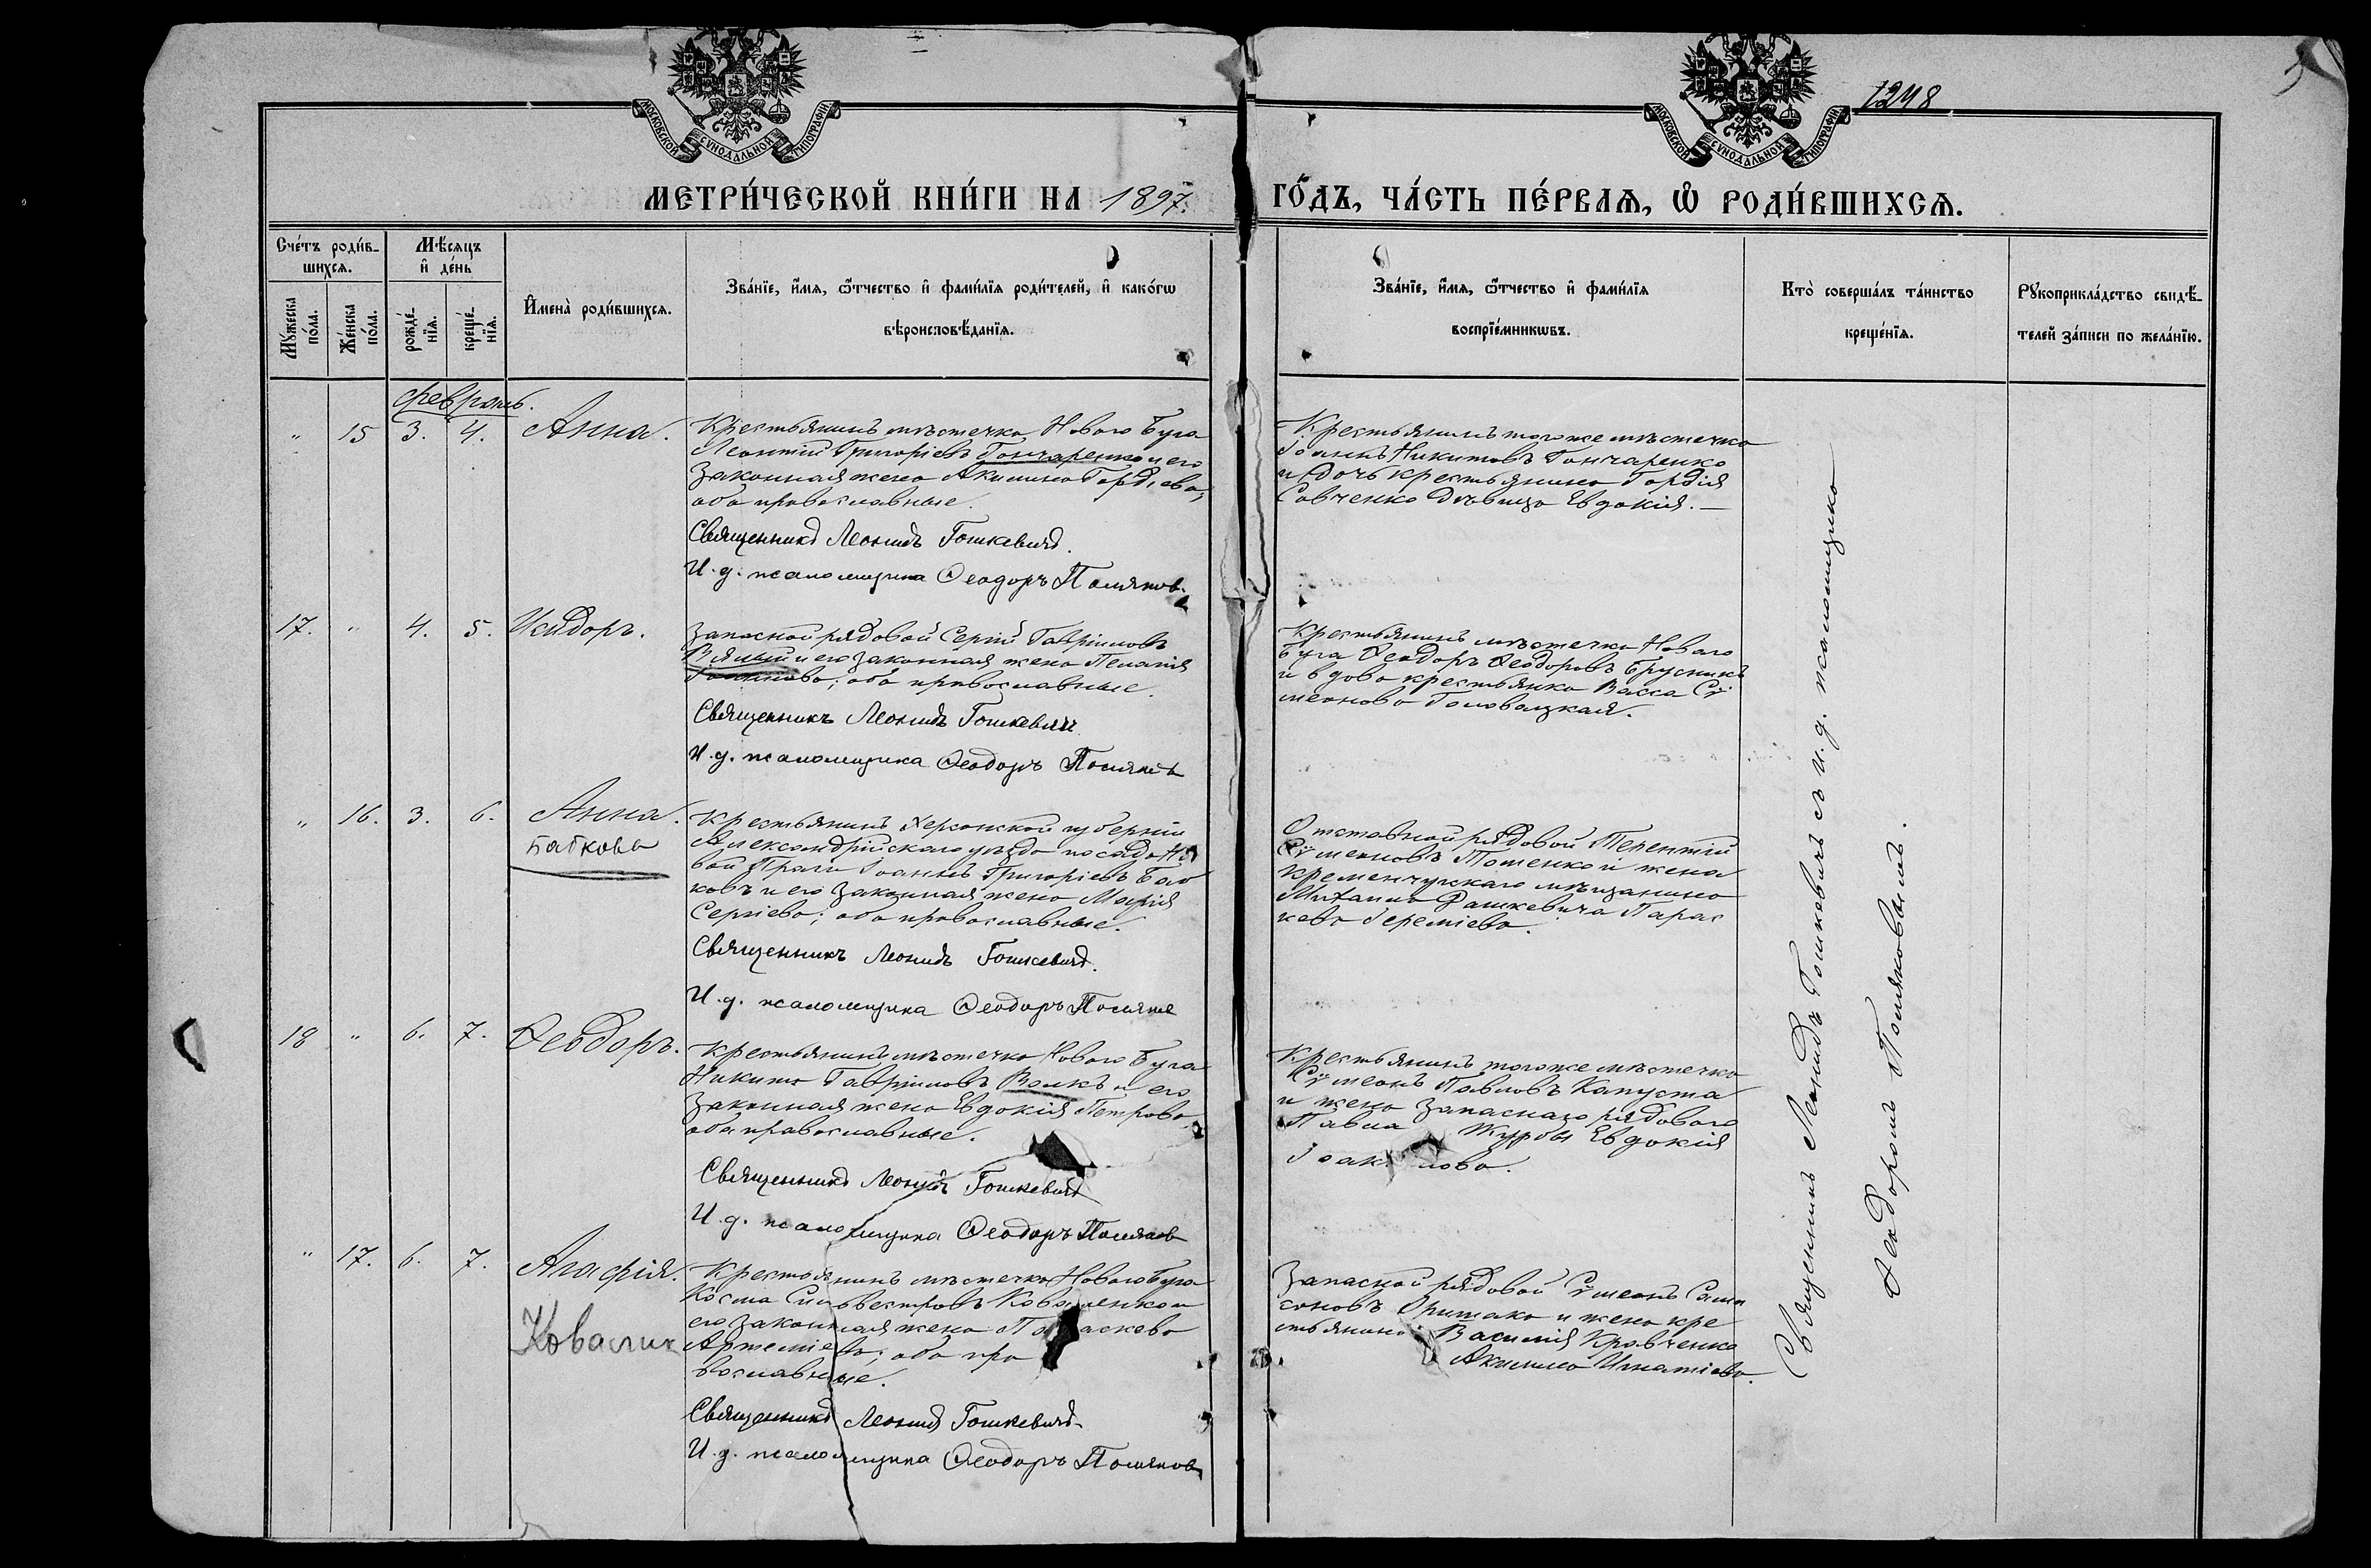 МОСКОВСКОЙ СѴНОДАЛЬНОЙ ТИПОГРАФІИ
МОСКОВСКОЙ СѴНОДАЛЬНОЙ ТИПОГРАФІИ
1248
МЕТРИ́ЧЕСКОЙ КНИ́ГИ НА 1897. ГО́ДЪ, ЧА́СТЬ ПЕ́РВАѦ, Ѿ РОДИ́ВШИХСѦ.
Сче́тъ роди́в-
шихсѧ.
Мѣ́сяцъ
и҆ де́нь
Мꙋ́жеска
по́ла.
Же́нска
по́ла.
рожде́-
нїѧ.
креще́-
нїѧ.
И҆мена̀ роди́вшихсѧ.
Зва́нїе, и҆́мѧ, ѻ҆́тчество и҆ фами́лїѧ роди́телей, и҆ како́гѡ
вѣроисповѣ́данїѧ.
Зва́нїе, и҆́мѧ, ѻ҆́тчество и҆ фами́лїѧ
воспрїе́мникѡвъ.
Кто̀ соверша́лъ та́инство
креще́нїѧ.
Рꙋкоприкла́дство свидѣ́-
телей за́писи по жела́нїю.
Февраль.
" 15 3. 4. Анна.
Крестьянинъ мѣстечка Новаго Буга
Леонтій Григоріевъ Гончаренко и его
законная жена Акилина Гордіева,
оба православные.
Священникъ Леонидъ Гошкевичъ.
И. д. псаломщика Ѳеодоръ Поляковъ
Крестьянинъ того же мѣстечка
Іоаннъ Никитовъ Гончаренко
и дочь крестьянина Гордія
Савченко дѣвица Евдокія. —
17. " 4. 5. Исидоръ.
Запасной рядовой Сергій Гавріиловъ
и его законная жена Пелагія
Іоаннова; оба православные.
Священникъ Леонидъ Гошкевичъ
И. д. псаломщика Ѳеодоръ Поляковъ
Крестьянинъ мѣстечка Новаго
Буга Ѳеодоръ Ѳеодоровъ
и вдова крестьянка Васса Сѵ
меонова Головацкая.
" 16. 3. 6. Анна.
Баткова
Крестьянинъ Херсонской губерніи
Александрійскаго уѣзда посада Но
вой Праги Іоаннъ Григоріевъ Бат
ковъ и его законная жена Марія
Сергіева; оба православные.
Священникъ Леонидъ Гошкевичъ.
И. д. псаломщика Ѳеодоръ Поляковъ
Отставной рядовой Терентій
Сѵмеоновъ и жена
Кременчугскаго мѣщанина
Михаила Рашкевича Парас
кева Іереміева.
18 " 6. 7. Ѳеодоръ.
Крестьянинъ мѣстечка Новаго Буга
Никита Гавріиловъ Волкъ и его
законная жена Евдокія Петрова,
оба православные.
Священникъ Леонидъ Гошкевичъ
И. д. псаломщика Ѳеодоръ Поляковъ
Крестьянинъ того же мѣстечка
Сѵмеонъ Павловъ Капуста
и жена запаснаго рядового
Павла Журбы Евдокія
" 17. 6. 7. Агафія.
Ковалик
Крестьянинъ мѣстечка Новаго Буга
Косма Сильвестровъ Коваленко и
его законная жена Параскева
Артеміева; оба пра
вославные.
Священникъ Леонидъ Гошкевичъ
И. д. псаломщика Ѳеодоръ Поляковъ
Запасной рядовой Сѵмеонъ Самп
соновъ и жена кре
стьянина Василія Кравченко
Акилина Игнатіева.
Священникъ Леонидъ Гошкевичъ съ и. д. псаломщика
Ѳеодоромъ Поляковымъ.